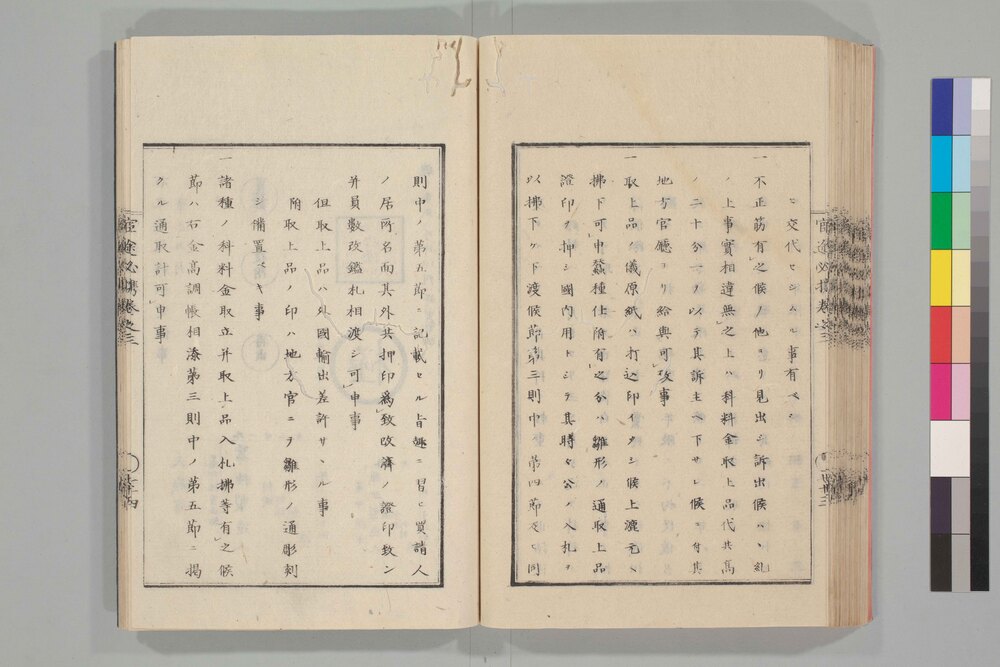 ニ交代セシムル事有ベシ
一不正筋有之候ハ他ヨリ見出シ訴出候ハヽ糺
ノ上事實相違無之上ハ科料金取上品代共高
ノ二十分一ヲ以テ其訴主ヘ下サレ候ニ付其
地方官廳ヨリ給與可致事
一取上品ノ儀原紙ハ打込印イタシ候上漉元ヘ
拂下可申蠶種仕附有之分ハ雛形ノ通取上品
證印ヲ押シ國内用トシテ其時々公ノ入札ヲ
以拂下ケ下渡候節第三則中ノ第四節及ヒ同
則中ノ第五節ニ記載セル旨趣ニ習ヒ買請人
ノ居所名面其外共押印爲致改濟ノ證印致シ
并員數改鑑札相渡シ可申事
但取上品ハ外國輸出差許サヾル事
附取上品ノ印ハ地方官ニヲ雛形ノ通彫刻
シ備置ベキ事
一諸種ノ科料金取立并取上品入札拂等有之候
節ハ右金高調帳相添第三則中ノ第五節ニ掲
クル通取計可申事
官途必携巻之三